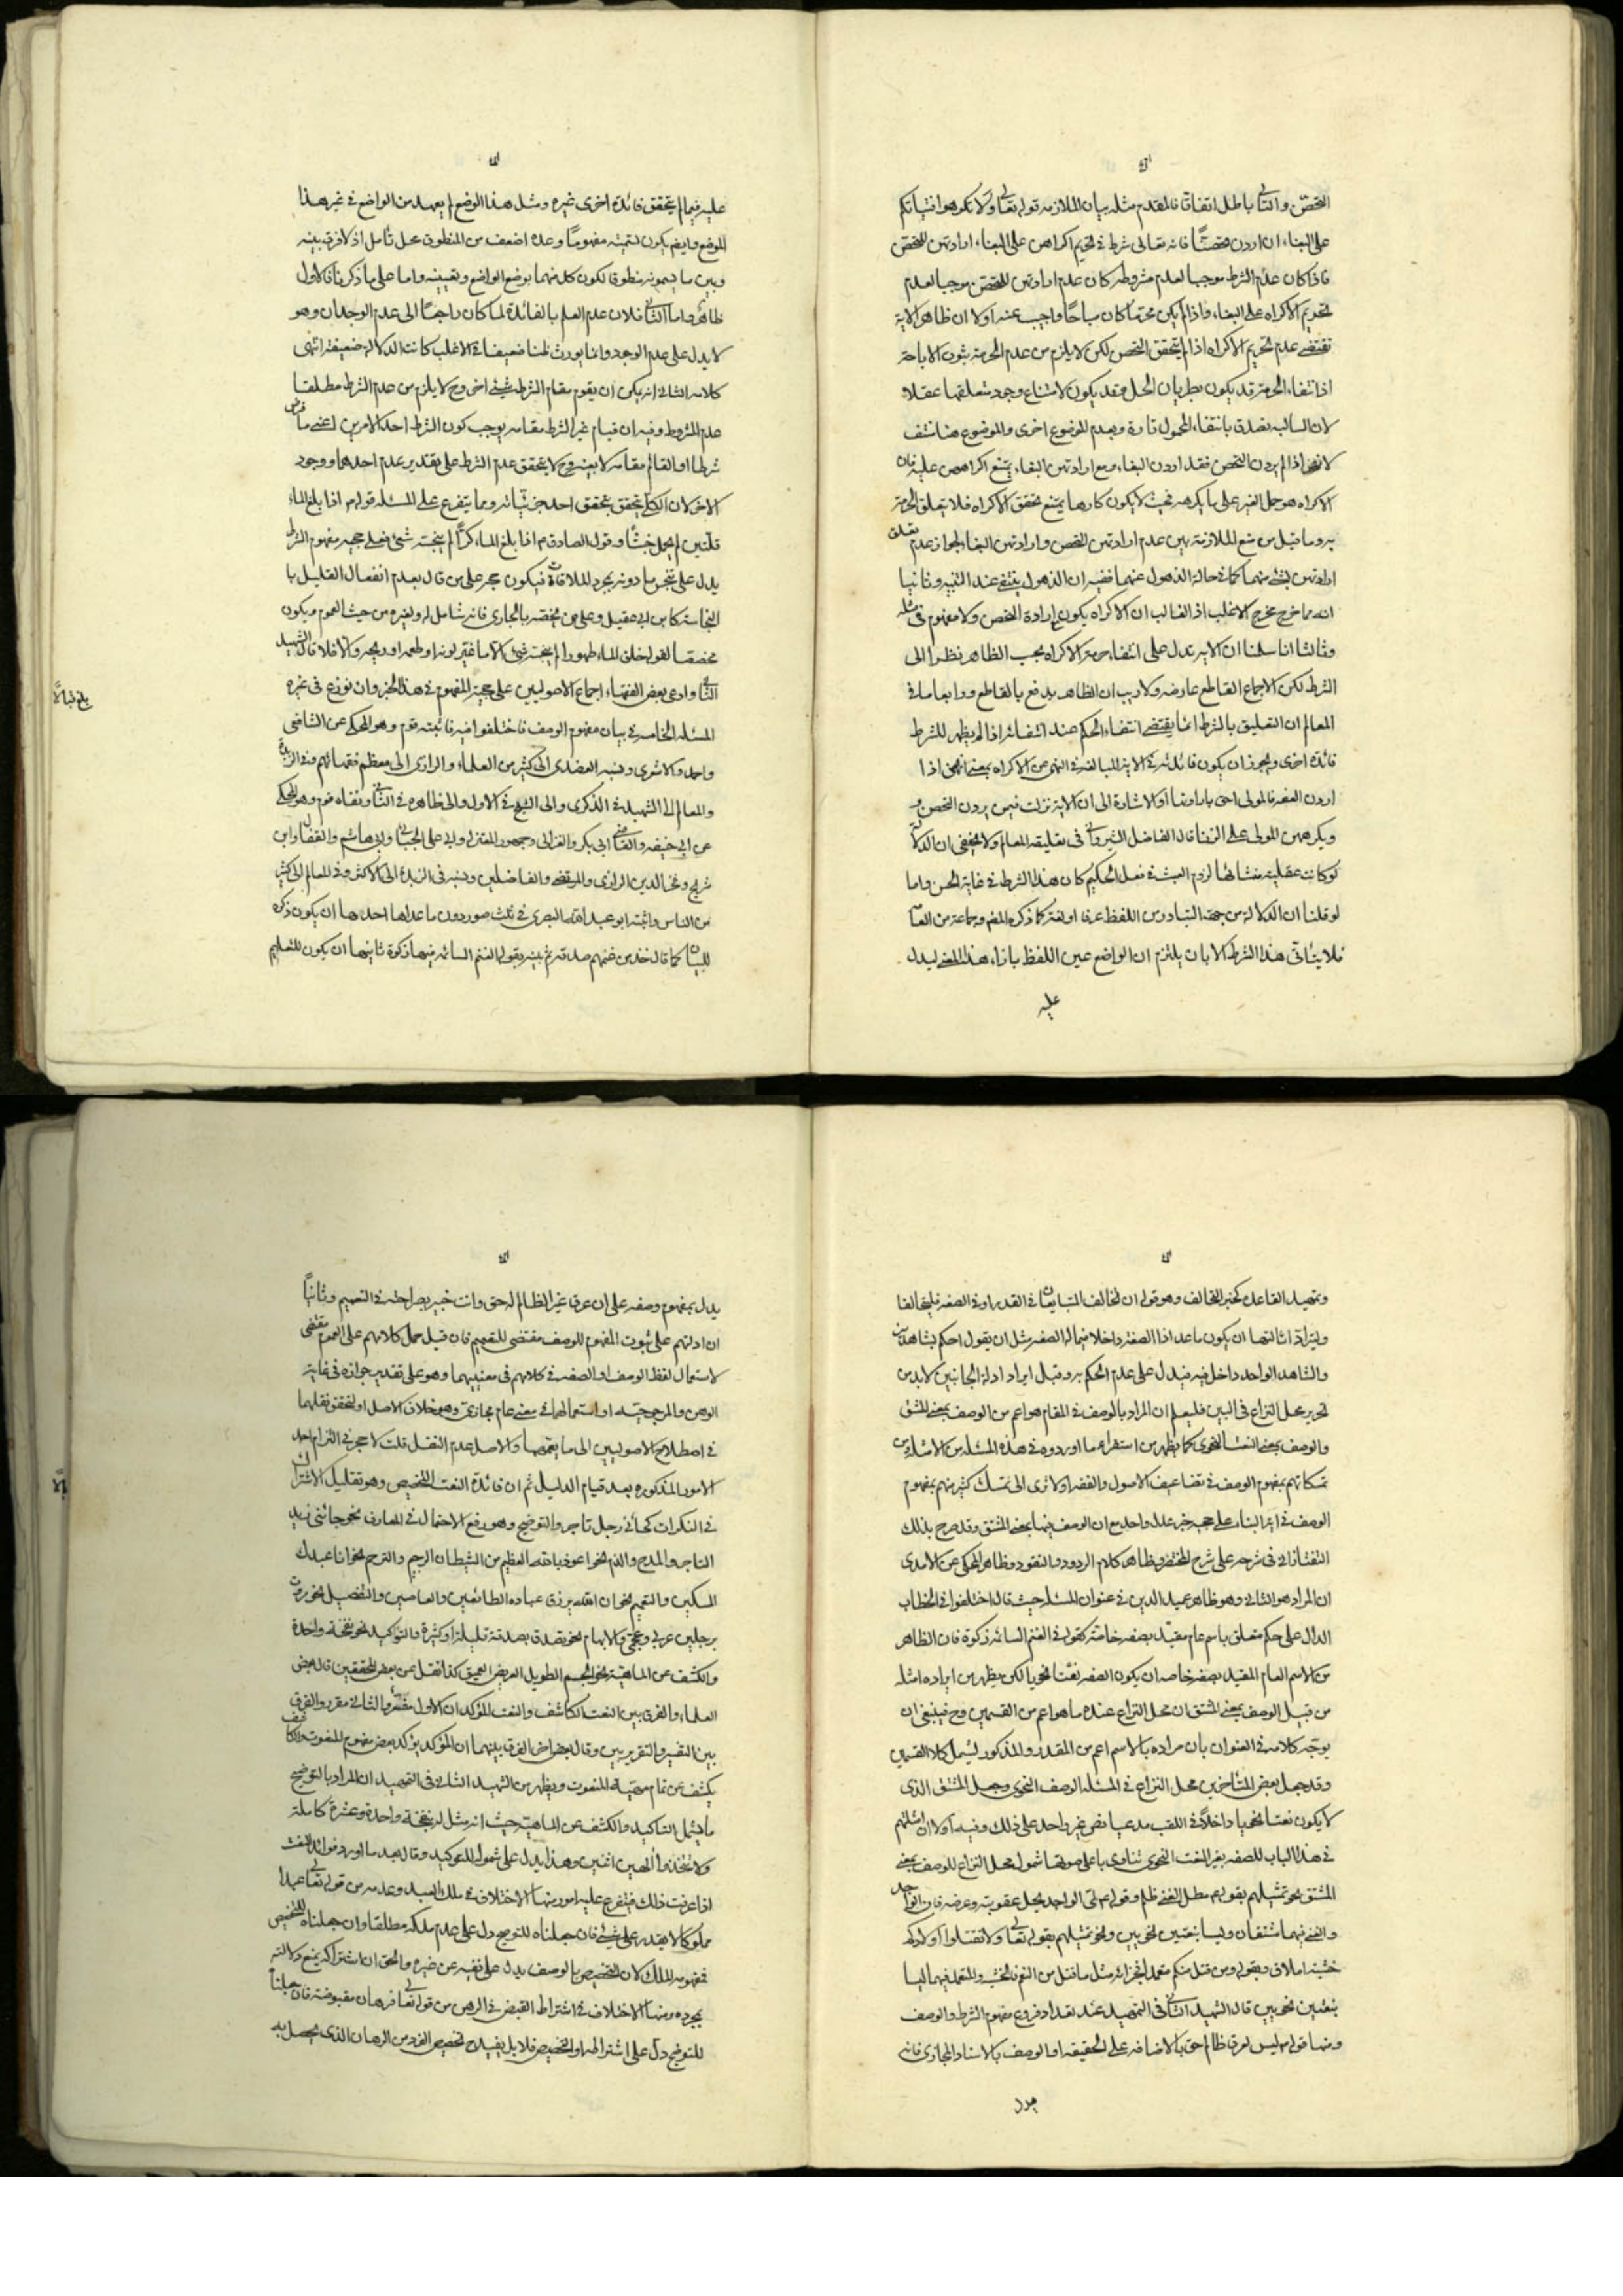 التحصن والتالى باطل اتفاقا فالمقدم مثله بيان الملازمة قوله تعالى ولا تكرهوا فتياتكم
على البغاء ان اردن تحصنا فانه تعالى شرط فى تحريم اكراههن على البغاء ارادتهن التحصن
فاذا كان عدم الشرط موجبا لعدم مشروطه كان عدم ارادتهن للتحصن موجبا لعدم
تحريم الاكراه على البغاء واذا لم يكن محرما كان مباحا واجيب عنه اولا ان ظاهر الاية
تقتضى عدم تحريم الاكراه اذا لم يتحقق التحصن لكن لا يلزم من عدم الحرمة ثبوت الاباحة
اذ انتفاء الحرمة قد يكون بطريان الحل وقد يكون لامتناع وجود متعلقها عقلا
لان السالبه تصدق بانتفاء المحمول تارة وبعدم الموضوع اخرى والموضوع هنا منتف
لانهن اذا لم يردن التحصن فقد اردن البغاء ومع ارادتهن البغاء يمتنع اكراههن عليه فان
الاكراه هو حمل الغير على ما يكرهه فحيث لا يكون كارها يمتنع تحقق الاكراه فلا يتعلق الحرمة
به وما قيل من منع الملازمة بين عدم ارادتهن التحصن وارادتهن البغاء لجواز عدم تعلق
ارادتهن بشئ منهما كما فى حالة الذهول عنهما ففيه ان الذهول ينتفى عند التنبيه وثانيا
انه مما خرج مخرج الاغلب اذ الغالب ان الاكراه يكون مع ارادة التحصن ولا مفهوم فى مثله
وثالثا انا سلمنا ان الاية تدل على انتفاء حرمة الاكراه بحسب الظاهر نظرا الى
الشرط لكن الاجماع القاطع عارضه ولا ريب ان الظاهر يدفع بالقاطع ورابعا ما فى
المعالم ان التعليق بالشرط انما يقتضى انتفاء الحكم عند انتفائه اذا لم يظهر للشرط
فائدة اخرى ويجوز ان يكون فائدته فى الاية المبالغة فى النهى عن الاكراه يعنى انهن اذا
اردن العفة فالمولى احق بارادتها او الاشارة الى ان الاية نزلت فيمن يردن التحصن
ويكرههن المولى على الزنا قال الفاضل الشيروانى فى تعليقه المعالم ولا يخفى ان الدلالة
لو كانت عقلية منشائها لزوم العبث فى فعل الحكيم كان هذا الشرط فى غاية الحسن واما
لو قلنا ان الدلالة من جهة التبادر من اللفظ عرفا او لغة كما ذكره المصنف وجماعة من العامة
فلا يتأتى هذا الشرط الا بان يلتزم ان الواضع عين اللفظ بازاء هذا المعنى ليدل
عليه
عليه فيما لم يتحقق فائدة اخرى غيره ومثل هذا الوضع لم يعهد من الواضع فى غير هذا
الموضع وايضا يكون لتسميته مفهوما وعده اضعف من المنطوق محل تأمل اذ لا فرق بينه
وبين ما يسمونه منطوقا لكون كل منهما بوضع الواضع وتعيينه واما على ما ذكرنا فالاول
ظاهر واما الثانى فلان عدم العلم بالفائدة لما كان راجعا الى عدم الوجدان وهو
لا يدل على عدم الوجود وانما يورث ظنا ضعيفا فى الاغلب كانت الدلالة ضعيفة انتهى
كلامه الثانى انه يمكن ان يقوم مقام الشرط شئ اخر وح لا يلزم من عدم الشرط مطلقا
عدم المشروط وفيه ان قيام غير الشرط مقامه يوجب كون الشرط احد الامرين اعنى ما فرض
شرطا او القائم مقامه لا بعينه وح لا يتحقق عدم الشرط على تقدير عدم احدهما ووجود
الاخر لان الكلى يتحقق بتحقق احد جزئياته ومما يتفرع على المسئله قوله ص اذا بلغ الماء
قلتين لم يحمل خبثا وقول الصادق ع اذا بلغ الماء كرا لم ينجسه شئ فعلى حجيه مفهوم الشرط
يدل على تنجس ما دونه بمجرد الملاقاة فيكون حجة على من قال بعدم انفعال القليل با
النجاسة كابن ابى عقيل وعلى من يخصه بالجارى فانه شامل له ولغيره من حيث العموم ويكون
مخصصا لقوله خلق الماء طهورا لم ينجسه شئ الا ما غير لونه او طعمه او ريحه والا فلا قال الشهيد
الثانى وادعى بعض الفقهاء اجماع الاصوليين على حجية المفهوم فى هذا الخبر وان نوزع فى غيره
المسئله الخامسة فى بيان مفهوم الوصف فاختلفوا فيه فاثبته قوم وهو المحكى عن الشافعى
واحمد والاشعرى ونسبه العضدى الى كثير من العلماء والرازى الى معظم فقهائهم وفى الزبدة
والمعالم الى الشهيد فى الذكرى والى الشيخ فى الاول والى ظاهره فى الثانى ونفاه قوم وهو المحكى
عن ابى حنيفه والقاضى ابى بكر والغزالى وجمهور المعتزله وابى على الجبائى وابى هاشم والقفال وابن
شريح وفخر الدين الرازى والمرتضى والفاضلين ونسبه فى الزبدة الى الاكثر وفى المعالم الى كثير
من الناس واثبته ابو عبد الله البصرى فى ثلث صور دون ما عداها احدها ان يكون ذكره
للبيان كما قال خذ من غنمهم صدقة ثم بينه بقوله الغنم السائمه فيها زكوة ثانيها ان يكون للتعليم
وتمهيد القاعده كخبر التخالف وهو قوله ان تخالف المتبايعان فى القدر او فى الصفه فليتحالفا
وليترادا ثالثها ان يكون ما عدا ذا الصفة داخلا فيما له الصفه مثل ان يقول احكم بشاهدين
والشاهد الواحد داخل فيه فيدل على عدم الحكم به وقبل ايراد ادلة الجانبين لا بد من
تحرير محل النزاع فى البين فليعلم ان المراد بالوصف فى المقام هو اعم من الوصف بمعنى المشتق
والوصف بمعنى النعت النحوى كما يظهر من استقراء ما اوردوه فى هذه المسئله من الامثله ومن
تمسكاتهم بمفهوم الوصف فى تضاعيف الاصول والفقه اولا ترى الى تمسك كثير منهم بمفهوم
الوصف فى اية النباء على حجيه خبر عدل واحد مع ان الوصف فيها بمعنى المشتق وقد صرح بذلك
التفتازانى فى شرحه على شرح المختصر وظاهر كلام الردود والنقود وظاهر المحكى عن الامدى
ان المراد هو الثانى وهو ظاهر عميد الدين فى عنوان المسئله حيث قال اختلفوا فى الخطاب
الدال على حكم متعلق باسم عام مقيد بصفه خاصة كقوله فى الغنم السائمه زكوة فان الظاهر
من الاسم العام المقيد بصفه خاصه ان يكون الصفه نعتا نحويا لكن يظهر من ايراده امثله
من قبيل الوصف بمعنى المشتق ان محل النزاع عنده ما هو اعم من القسمين وح فينبغى ان
يوجه كلامه فى العنوان بان مراده بالاسم اعم من المقدر والمذكور ليشمل كلا القسمين
وقد جعل بعض المتأخرين محل النزاع فى المسئله الوصف النحوى وجعل المشتق الذى
لا يكون نعتا نحويا داخلا فى اللقب مدعيا نص غير واحد على ذلك وفيه اولا ان امثلتهم
فى هذا الباب للصفه بغير النعت النحوى تنادى باعلى صوتها شمول محل النزاع للوصف بمعنى
المشتق نحو تمثيلهم بقوله ع مطل الغنى ظلم وقوله ع لى الواجد يحل عقوبته وعرضه فان الواجد
والغنى فيهما مشتقان وليسا بنعتين نحويين ونحو تمثيلهم بقوله تعالى ولا تقتلوا اولادكم
خشية املاق وبقوله ومن قتل منكم متعمدا فجزاؤه مثل ما قتل من النعم فالخشية والمتعمد فيهما ليسا
بنعتين نحويين قال الشهيد الثانى فى التمهيد عند تعداد فروع مفهوم الشرط والوصف
ومنها قوله ليس لعرق ظالم حق بالاضافه على الحقيقه او الوصف بالاسناد المجازى فانه
يدل
يدل بمفهوم وصفه على ان عرق غير الظالم له حق وانت خبير بصراحته فى التعميم وثانيا
ان ادلتهم على ثبوت المفهوم للوصف مقتضى للتعميم فان قيل حمل كلامهم على العموم مقتضى
لاستعمال لفظ الوصف او الصفه فى كلامهم فى معنييهما وهو على تقدير جوازه فى غاية
الوهن والمرجوحيه او استعمالهما فى معنى عام مجازى وهو خلاف الاصل او لتحقق نقلهما
فى اصطلاح الاصوليين الى ما يعمهما والاصل عدم النقل قلت لا حجر فى التزام احد
الامور المذكوره بعد قيام الدليل ثم ان فائدة النعت التخصيص وهو تقليل الاشتراك
فى النكرات كجائنى رجل تاجر والتوضيح وهو رفع الاحتمال فى المعارف نحو جائنى زيد
التاجر والمدح والذم نحو اعوذ بالله العظيم من الشيطان الرجيم والترحم نحو انا عبدك
المسكين والتعميم نحو ان الله يرزق عباده الطائعين والعاصين والتفصيل نحو مررت
برجلين عربى وعجمى والابهام نحو تصدق بصدقة قليلة او كثيرة والتوكيد نحو نفخة واحدة
والكشف عن الماهية نحو الجسم الطويل العريض العميق كذا نقل عن بعض المحققين قال بعض
العلماء والفرق بين النعت الكاشف والنعت المؤكد ان الاول مفسر والثانى مقرر والفرق
بين التفسير والتقرير بين وقال بعض اخر الفرق بينهما ان المؤكد يؤكد بعض مفهوم المنعوت والكاشف
يكشف عن تمام مهية المنعوت ويظهر من الشهيد الثانى فى التمهيد ان المراد بالتوضيح
ما يشمل التاكيد والكشف عن الماهية حيث انه مثل له بنفخة واحدة وعشرة كاملة
ولا تتخذوا الهين اثنين وهذا يدل على شموله للتوكيد وقال بعد ما اورد فوائد النعت
اذا عرفت ذلك فيتفرع عليه امور منها الاختلاف فى ملك العبد وعدمه من قوله تعالى عبدا
مملوكا لا يقدر على شئ فان جعلناه للتوضيح دل على عدم ملكه مطلقا وان جعلناه للتخصيص
فمفهومه الملك لان التخصيص بالوصف يدل على نفيه عن غيره والحق ان اشتراكه يمنع دلالته
بمجرده ومنها الاختلاف فى اشتراط القبض فى الرهن من قوله تعالى فرهان مقبوضة فان جعلناه
للتوضيح دل على اشتراطه او للتخصيص فلا بل يفيد تخصيص الفرد من الرهان الذى يحصل به